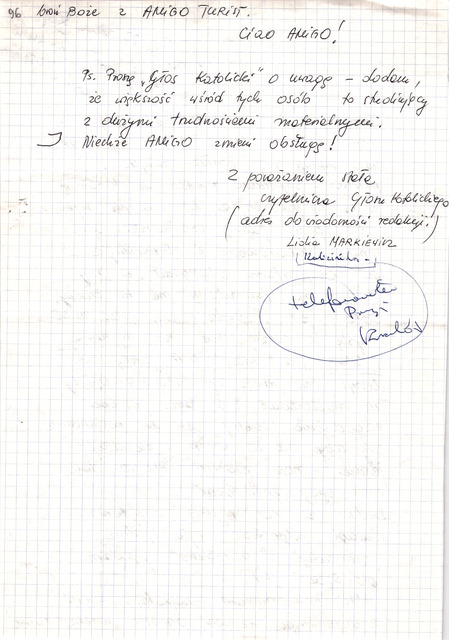 96 broń Boże z AMIGO TURIST.
Ciao AMIGO!
Ps. Proszę „Głos Katolicki" o uwagę – dodam,
że większość wśród tych osób to studiujący
z dużymi trudnościami materialnymi.
Niechże AMIGO zmieni obsługę!
Z poważaniem stała
czytelniczka Głosu Katolickiego
(adres do wiadomości redakcji!)
Lidia MARKIEWICZ